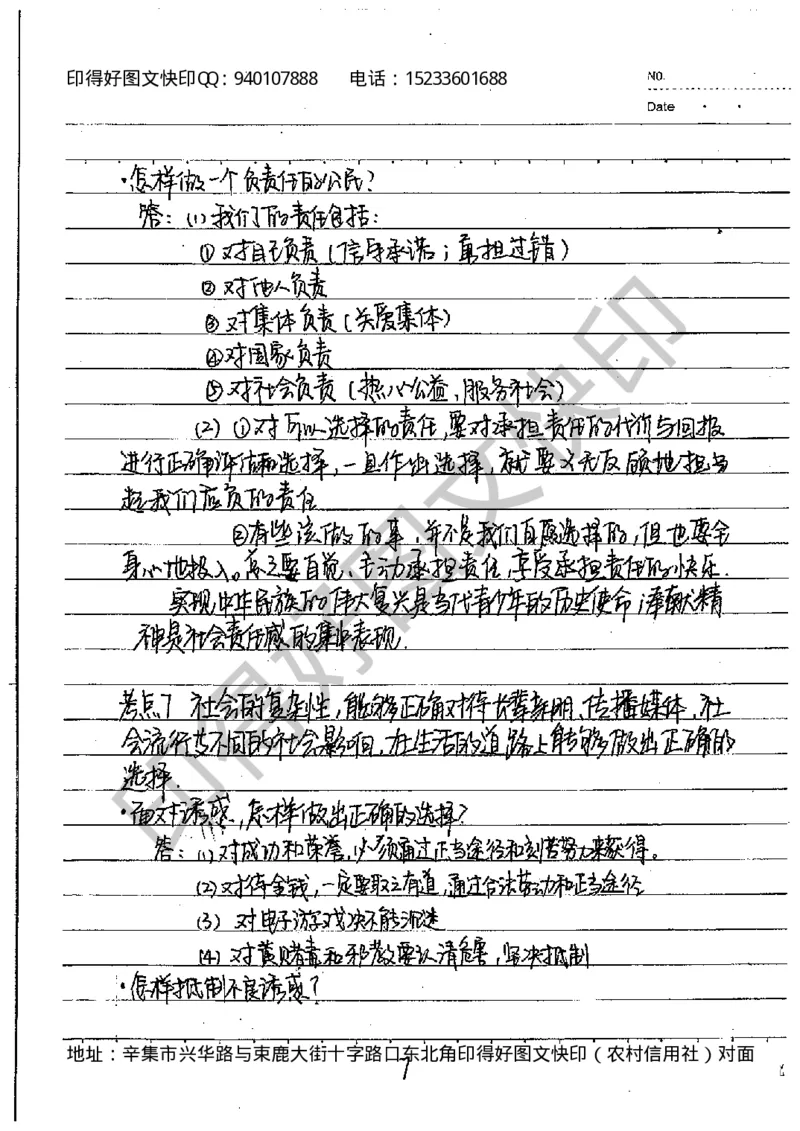 印得好图文快印QQ：940107888 电话：15233601688
No.
Date
·怎样做一个负责任的公民？
答：(1)我们的责任包括：
①对自己负责（信守承诺；勇担过错）
②对他人负责
③对集体负责（关爱集体）
④对国家负责
⑤对社会负责（热心公益，服务社会）
(2)①对所以选择的责任，要对承担责任的代价与回报
进行正确评估和选择，一旦作出选择，就要义无反顾地担当
起我们应负的责任
②有些该做的事，并不是我们自愿选择的，但也要全
身心地投入。总之要自觉、主动承担责任，享受承担责任的快乐．
实现中华民族的伟大复兴是当代青少年的历史使命；奉献精
神是社会责任感的集中表现．
考点7 社会的复杂性，能够正确对待长辈、朋、传播媒体、社
会流行等不同的社会影响，在生活的道路上能够做出正确的
选择．
·面对诱惑，怎样做出正确的选择？
答：(1)对成功和荣誉，必须通过正当途径和刻苦努力来获得。
(2)对待金钱，一定要取之有道，通过合法劳动和正当途径
(3) 对电子游戏决不能沉迷
(4) 对黄赌毒和邪教要认清危害，坚决抵制
·怎样抵制不良诱惑？
地址：辛集市兴华路与束鹿大街十字路口东北角印得好图文快印（农村信用社）对面
印得好图文快印